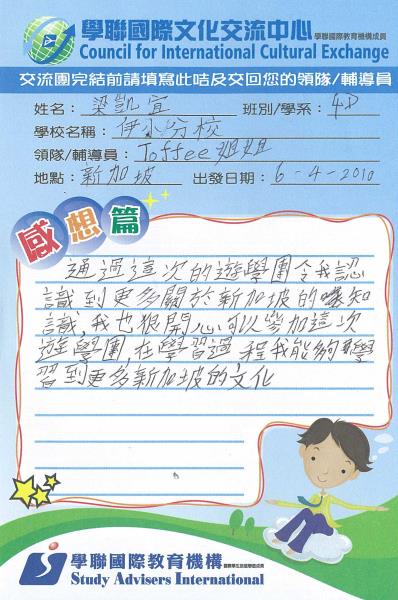 學聯國際文化交流中心 學聯國際教育機構成員
Council for International Cultural Exchange
交流團完結前請填寫此咭及交回您的領隊/輔導員
姓名：梁凱宜 班別/學系：4D
學校名稱：伊小分校
領隊/輔導員：Toffee姐姐
地點：新加坡 出發日期：6-4-2010
感想篇
通過這次的遊學團令我認
識到更多關於新加坡的知
識，我也狠開心可以參加這次
遊學團，在學習過程我能夠學
習到更多新加坡的文化
學聯國際教育機構
Study Advisers International